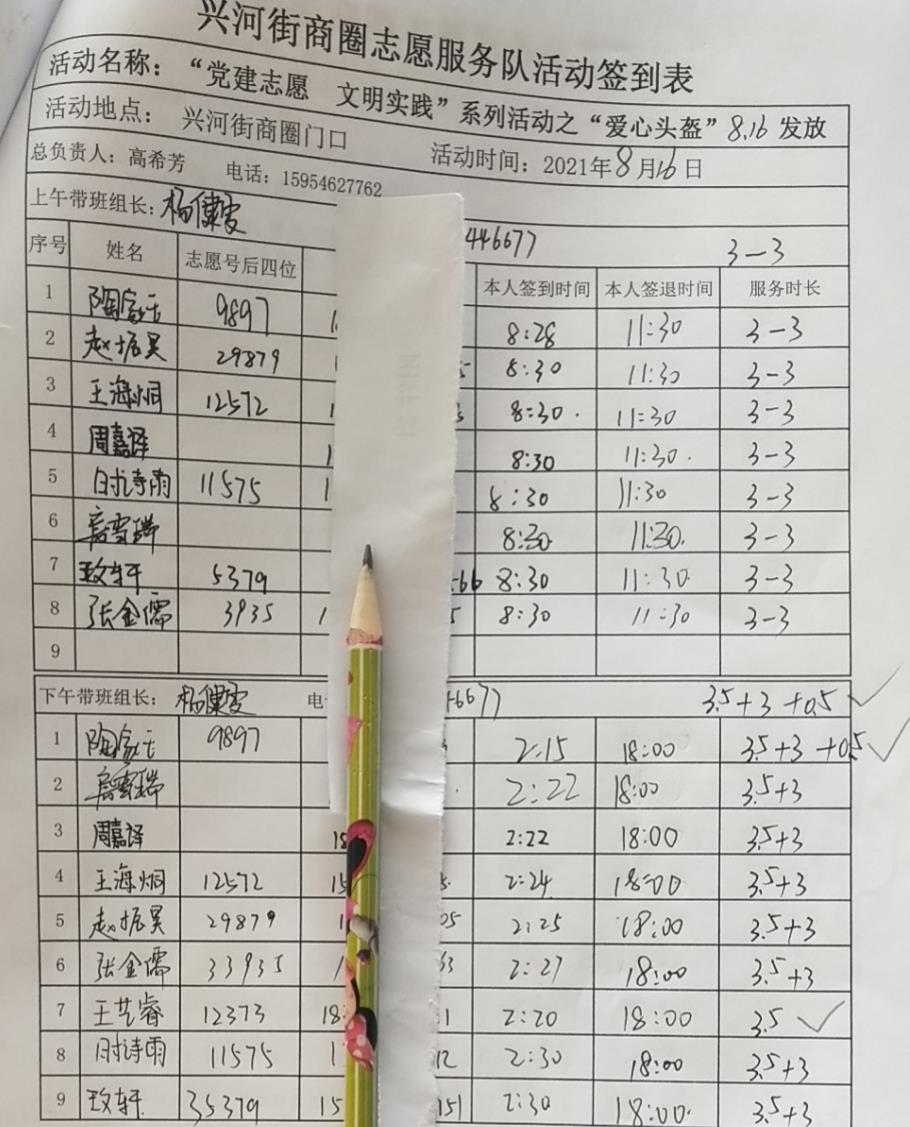 兴河街商圈志愿服务队活动签到表
活动名称：“党建志愿 文明实践”系列活动之“爱心头盔”8.16发放
活动地点：兴河街商圈门口 活动时间：2021年8月16日
总负责人：高希芳 电话：15954627762
上午带班组长： 446677 3-3
序号 姓名 志愿号后四位 本人签到时间 本人签退时间 服务时长
1 9897 8:28 11:30 3-3
2 赵振昊 29879 8:30 11:30 3-3
3 王海炯 12572 8:30 11:30 3-3
4 周嘉译 8:30 11:30 3-3
5 时诗雨 11575 8:30 11:30 3-3
6 8:30 11:30 3-3
7 5379 66 8:30 11:30 3-3
8 张金儒 3935 8:30 11:30 3-3
9
下午带班组长： 电 6677 3.5+3 +0.5
1 9897 2:15 18:00 3.5+3 +0.5
2 2:22 18:00 3.5+3
3 周嘉译 18 2:22 18:00 3.5+3
4 王海炯 12572 15 2:24 18:00 3.5+3
5 赵振昊 29879 05 2:25 18:00 3.5+3
6 张金儒 33935 63 2:27 18:00 3.5+3
7 王艺睿 12373 18 1 2:20 18:00 3.5
8 时诗雨 11575 1 12 2:30 18:00 3.5+3
9 35379 15 151 2:30 18:00 3.5+3